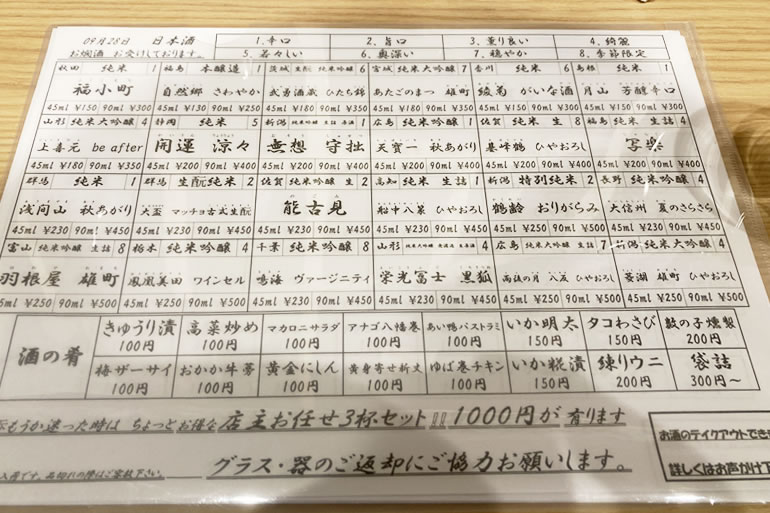 09月28日 日本酒 1. 辛口 2. 旨口 3. 薫り良い 4. 綺麗
お燗酒 お受けしております。 5. 若々しい 6. 奥深い 7. 穏やか 8. 季節限定
秋田 純米 1 福島 本醸造 1 茨城 生酛 純米吟醸 6 宮城 純米大吟醸 7 香川 純米 6 島根 純米 1
福小町 自然郷 さわやか 武勇酒蔵 ひたち錦 あたごのまつ 雄町 綾菊 がいな酒 月山 芳醇辛口
45ml ¥150 90ml ¥300 45ml ¥130 90ml ¥250 45ml ¥180 90ml ¥350 45ml ¥180 90ml ¥350 45ml ¥150 90ml ¥300 45ml ¥150 90ml ¥300
山形 純米大吟醸 4 静岡 純米 5 新潟 純米吟醸 1 広島 純米吟醸 1 佐賀 純米 生 8 福島 純米吟醸 生詰 4
上喜元 be after 開運 涼々 無想 守拙 天寶一 秋あがり 基峰鶴 ひやおろし 写楽
45ml ¥180 90ml ¥350 45ml ¥200 90ml ¥400 45ml ¥200 90ml ¥400 45ml ¥200 90ml ¥400 45ml ¥200 90ml ¥400 45ml ¥200 90ml ¥400
群馬 純米 1 群馬 生酛純米 2 佐賀 純米吟醸 生 2 高知 純米 生詰 1 新潟 特別純米 2 長野 純米吟醸 4
浅間山 秋あがり 大盃 マッチョ古式生酛 能古見 船中八策 ひやおろし 鶴齢 おりがらみ 大信州 夏のさらさら
45ml ¥230 90ml ¥450 45ml ¥230 90ml ¥450 45ml ¥230 90ml ¥450 45ml ¥230 90ml ¥450 45ml ¥230 90ml ¥450 45ml ¥230 90ml ¥450
富山 純米吟醸 生詰 8 栃木 純米吟醸 4 千葉 純米吟醸 8 山形 純米大吟醸 4 広島 純米吟醸 生詰 7 新潟 純米吟醸 4
羽根屋 雄町 鳳凰美田 ワインセル 鳴海 ヴァージニティ 栄光冨士 黒狐 雨後の月 八反 ひやおろし 菱湖 雄町 ひやおろし
45ml ¥250 90ml ¥500 45ml ¥250 90ml ¥500 45ml ¥230 90ml ¥450 45ml ¥230 90ml ¥450 45ml ¥250 90ml ¥500 45ml ¥250 90ml ¥500
酒の肴
きゅうり漬 高菜炒め マカロニサラダ アナゴ八幡巻 あい鴨パストラミ いか明太 タコわさび 数の子燻製
100円 100円 100円 100円 100円 150円 150円 200円
梅ザーサイ おかか牛蒡 黄金にしん 黄身寄せ新丈 ゆば巻チキン いか糀漬 練りウニ 袋詰
100円 100円 100円 100円 100円 150円 200円 300円～
もうか迷った時は ちょっとお得な 店主お任せ3杯セット!! 1000円が有ります
お酒のテイクアウトでき
グラス・器のご返却にご協力お願いします。
詳しくはお声かけ下